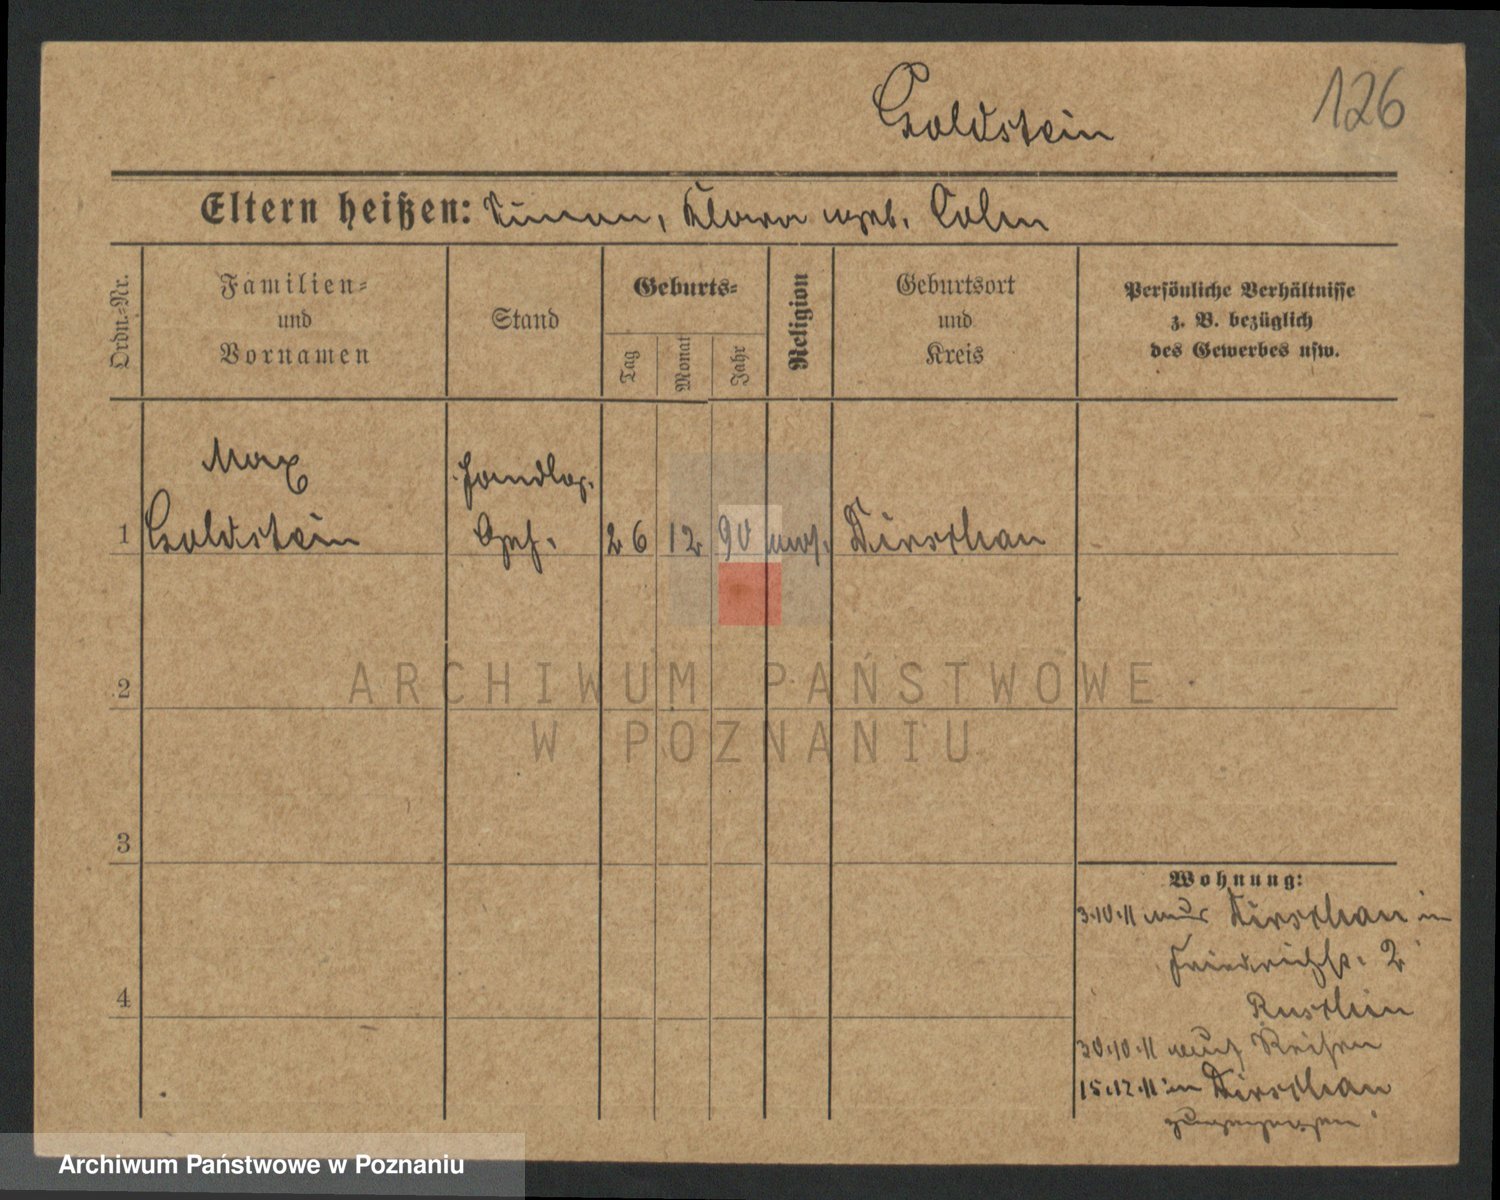 Goldstein
126
Eltern heißen: Simon, Klara geb. Cohn
Ordn.-Nr.
Familien-
und
Vornamen
Stand
Geburts-
Tag
Monat
Jahr
Religion
Geburtsort
und
Kreis
Persönliche Verhältnisse
z. B. bezüglich
des Gewerbes usw.
Max
Goldstein
Handlgs.
Geh.
1
26
12
90
mos.
Dirschau
2
3
4
Wohnung:
3.10.11 aus Dirschau in
Friedrichstr. 2
30.10.11 auf Reisen
15.12.11 in Dirschau
zugezogen
ARCHIWUM PAŃSTWOWE
W POZNANIU
Archiwum Państwowe w Poznaniu